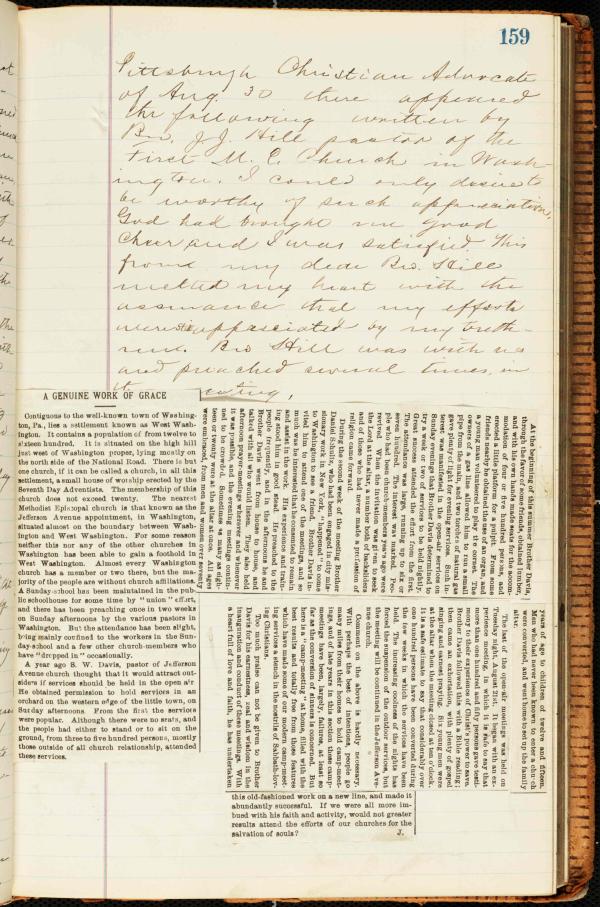 159
Pittsburgh Christian Advocate
of Aug. 30 there appeared
the following written by
Bro. J. J. Hill pastor of the
First M. E. Church in Wash-
ington. I could only desire to
be worthy of such appreciation,
God had brought me good
Cheer and I was satisfied This
from my dear Bro. Hill
melted my heart with the
assurance that my efforts
were appreciated by my breth-
ren. Bro Hill was with us
and preached several times, in
the
A GENUINE WORK OF GRACE
Contiguous to the well-known town of Washing-
ton, Pa., lies a settlement known as West Wash-
ington. It contains a population of from twelve to
sixteen hundred. It is situated on the high hill
just west of Washington proper, lying mostly on
the north side of the National Road. There is but
one church, if it can be called a church, in all this
settlement, a small house of worship erected by the
Seventh Day Adventists. The membership of this
church does not exceed twenty. The nearest
Methodist Episcopal church is that known as the
Jefferson Avenue appointment, in Washington,
situated almost on the boundary between Wash-
ington and West Washington. For some reason
neither this nor any of the other churches in
Washington has been able to gain a foothold in
West Washington. Almost every Washington
church has a member or two there, but the ma-
jority of the people are without church affiliations.
A Sunday-school has been maintained in the pub-
lic schoolhouse for some time by "union" effort,
and there has been preaching once in two weeks
on Sunday afternoons by the various pastors in
Washington. But the attendance has been slight,
being mainly confined to the workers in the Sun-
day-school and a few other church-members who
have "dropped in" occasionally.
A year ago W. Davis, pastor of Jefferson
Avenue church thought that it would attract out-
siders if services should be held in the open air.
He obtained permission to hold services in an
orchard on the western edge of the little town, on
Sunday afternoons. From the first the services
were popular. Although there were no seats, and
the people had either to stand or to sit on the
ground, from three to five hundred persons, mostly
those outside of all church relationship, attended
these services.
At the beginning of this summer Brother Davis,
through the favor of some friends, obtained lumber,
and with his own hands made seats for the accom-
modation of from four to five hundred persons, and
erected a little platform for a pulpit. From some
friends nearby he obtained the use of an organ, and
a young man volunteered to play the cornet. The
owners of a gas line allowed him to run a small
pipe from the main, and two torches of natural gas
gave plenty of light for evening services. Such in-
terest was manifested in the summer services on
Sunday evenings that Brother Davis determined to
try a week or two of services to be held nightly.
Great success attended the effort from the first.
The attendance was large, running up to six or
seven hundred. The interest was marked. Peo-
ple who had been church-members years ago were
revived. When an invitation was given to seek
the Lord at the altar, a number both of backsliders
and of those who had never made a profession of
religion came forward.
During the second week of the meeting Brother
Daniel Schultz, who had been engaged in city mis-
sionary work in New York, "happened" to come
to Washington to see a friend. Brother Davis in-
vited him to attend one of the meetings, and so
much was he interested that he consented to remain
and assist in the work. His experience and train-
ing stood him in good stead. He preached to the
people frequently, and in the afternoons he and
Brother Davis went from house to house and
talked with all who would listen. They also held
afternoon prayer-meetings when and wherever
it was possible, and the evening meetings contin-
ued to be crowded. Sometimes as many as eigh-
teen or twenty were at the altar. All ages
were embraced, from men and women over seventy
years of age to children of twelve and fifteen.
Men who have never been known to enter a church
were converted, and went home to set up the family
altar.
The last of the open-air meetings was held on
Tuesday night, August 21st. It began with an ex-
perience meeting, in which it is safe to say that
more than one hundred and fifty persons gave testi-
mony to their experience of Christ's power to save.
Brother Davis followed this with a Bible reading;
then came an altar service, with plenty of gospel
singing and earnest praying. Six young men were
at the altar when the meeting closed at ten o'clock.
It is a safe estimate to say that considerably over
one hundred persons have been converted during
the few weeks in which the services have been
held. The increasing coolness of the nights has
forced the suspension of the outdoor services, but
the meeting will be continued in the Jefferson Ave-
nue church.
Comment on the above is hardly necessary.
With perhaps the best of intentions, people go
many miles from their homes to hold camp-meet-
ings, and of late years in this section these camp-
meetings have been, largely, failures, at least so
far as the conversion of sinners is concerned. But
here is a "camp-meeting" at home, filled with the
best results, and totally free from those features
which have made some of our modern camp-meet-
ing services a stench in the nostrils of Sabbath-lov-
ing Christians.
Too much praise can not be given to Brother
Davis for his earnestness, zeal and wisdom in the
inauguration and conduct of these meetings. With
a heart full of love and faith, he has undertaken
this old-fashioned work on a new line, and made it
abundantly successful. If we were all more im-
bued with his faith and activity, would not greater
results attend the efforts of our churches for the
salvation of souls? J.